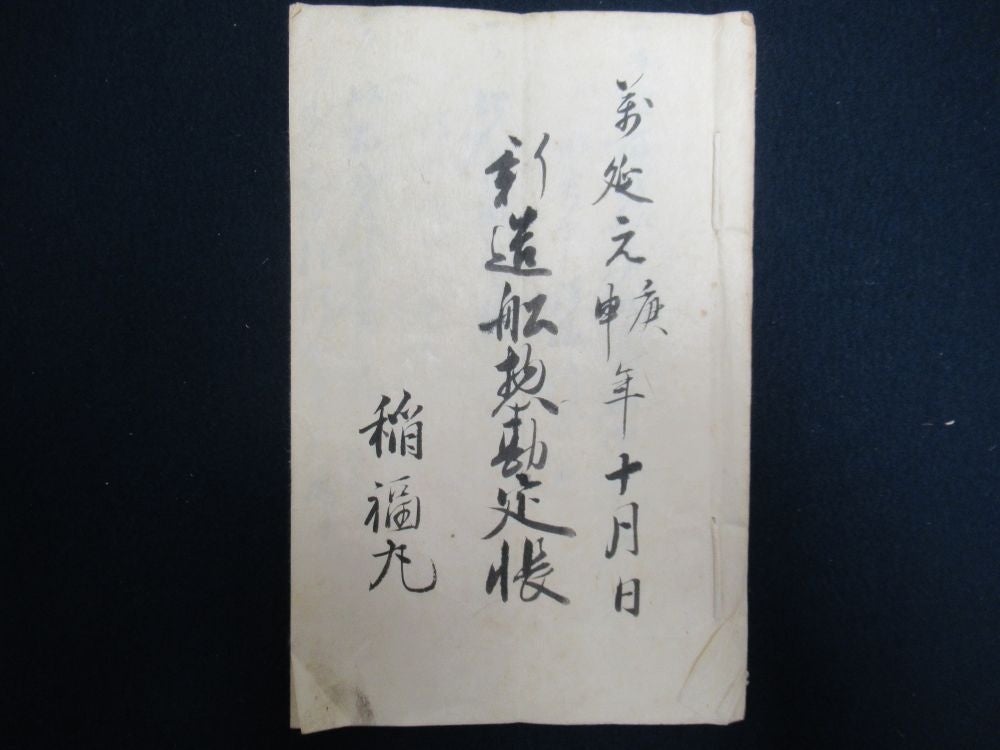 萬延元庚申年十月日
新造舩惣勘定帳
稲福丸